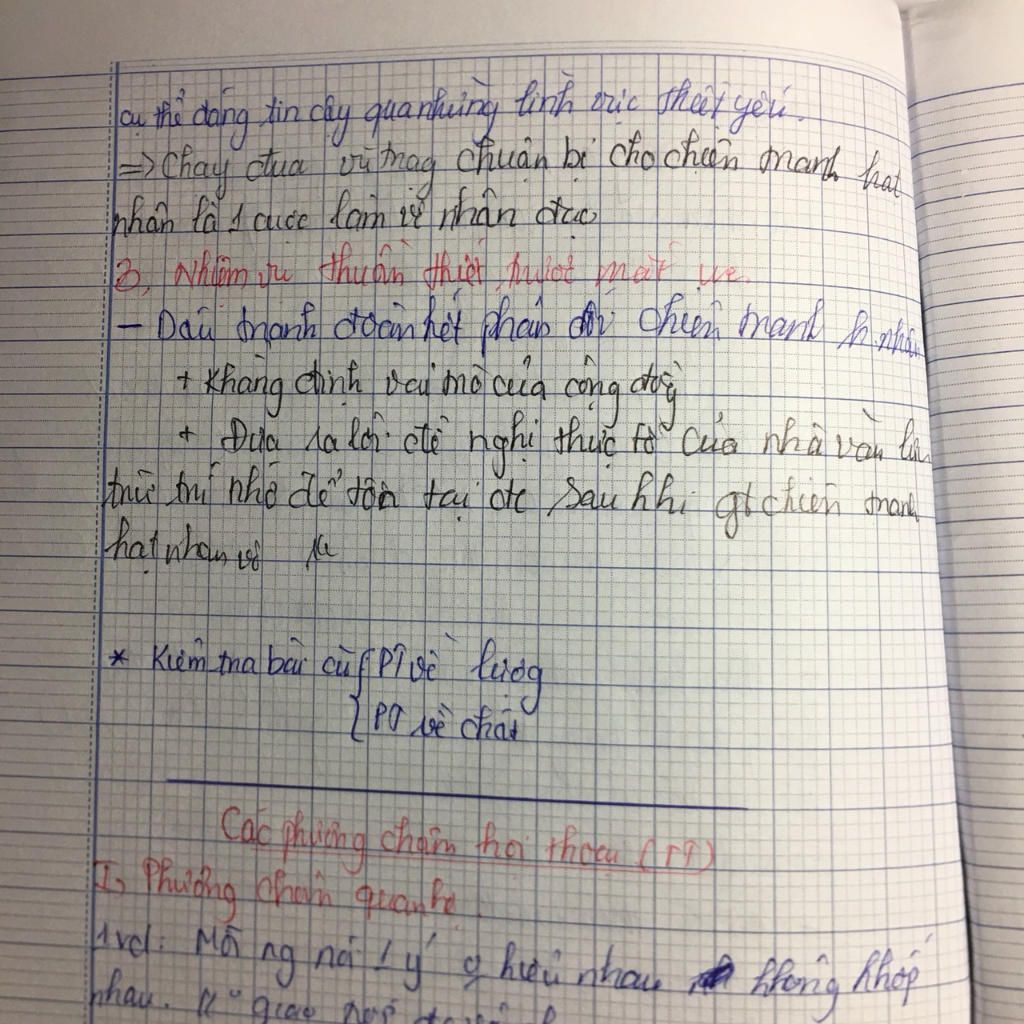 cụ thể đáng tin cậy qua những lĩnh vực thiết yếu.
=> Chạy đua vũ trag chuẩn bị cho chiến tranh hạt
nhân là 1 cuộc làm vô nhân đạo
3, Nhiệm vụ thuần thiết, trước mắt
- Đấu tranh đoàn kết phản đối chiến tranh h nhân
+ Khẳng định vai trò của cộng đồg
+ Đưa ra lời đề nghị thực tế của nhà văn lưu
trữ trí nhớ để tồn tại đc sau khi gt chiến tranh
hạt nhân
* Kiểm tra bài cũ { PT về lượg
{ PT về chất
Các phương châm hội thoại (TT)
I, Phương châm quan hệ
1 vd: Mỗi ng nói 1 ý g hiểu nhau không khớp
nhau. giao